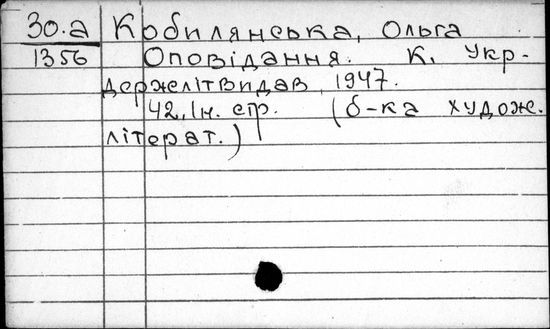 30.а Кобилянська, Ольга
1356 Оповідання. К. Укр-
держлітвидав, 1947.
42, Ін. стр. (б-ка художе.
літерат.)